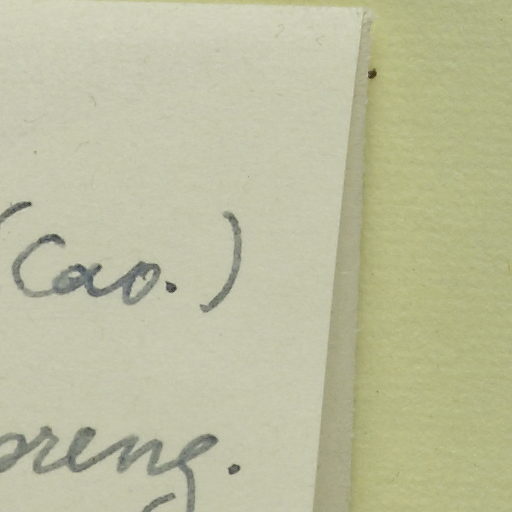 (Cav.)
oreng.